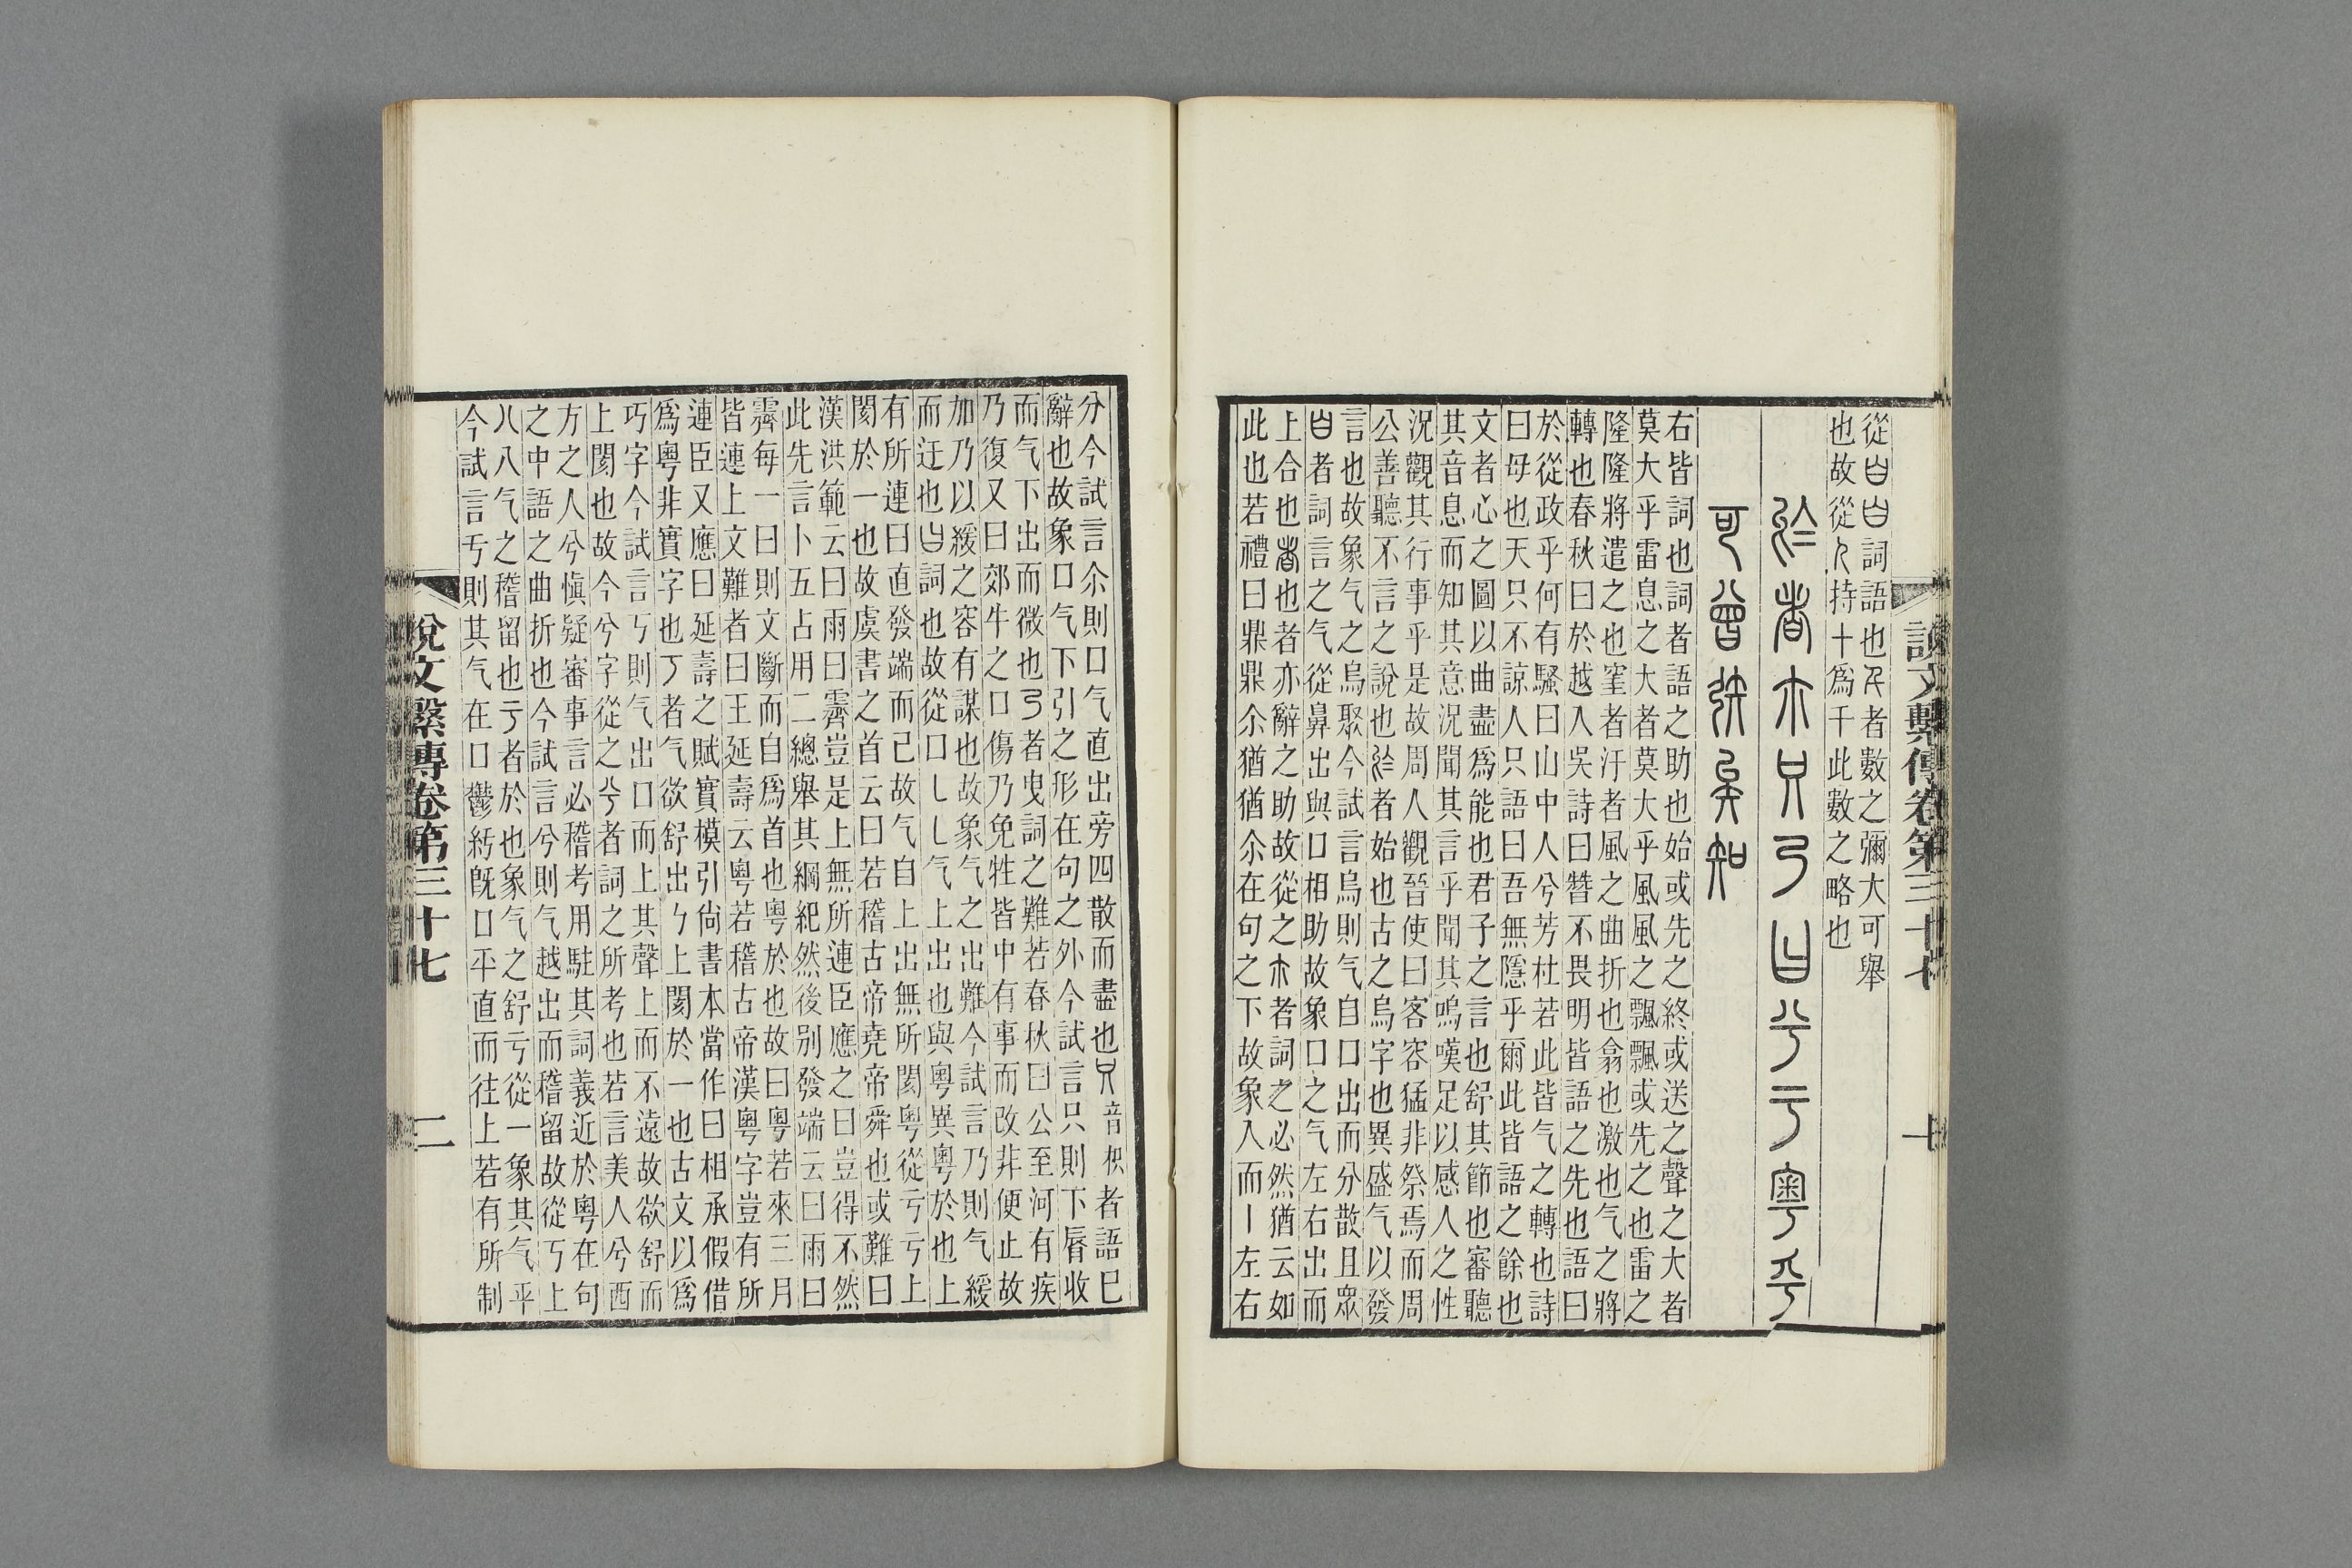 從白白詞語也尺者數之彌大可舉
也故從人持十爲千此數之略也
於者尒只乃曰兮亏粤乎
可曾矣知
右皆詞也詞者語之助也始或先之終或送之聲之大者
莫大乎雷息之大者莫大乎風風之飄飄或先之也雷之
隆隆將遣之也窐者汙者風之曲折也翕也激也气之將
轉也春秋曰於越入吳詩曰朁不畏明皆語之先也語曰
於從政乎何有騷曰山中人兮芳杜若此皆气之轉也詩
曰母也天只不諒人只語曰吾無隱乎爾此皆語之餘也
文者心之圖以曲盡爲能也君子之言也舒其節也審聽
其音息而知其意況聞其言乎聞其嗚嘆足以感人之性
況觀其行事乎是故周人觀晉使曰客容猛非祭焉而周
公善聽不言之說也於者始也古之烏字也異盛气以發
言也故象气之烏聚今試言烏則气自口出而分散且眾
白者詞言之气從鼻出與口相助故象口之气左右出而
上合也者也者亦辭之助故從之尒者詞之必然猶云如
此也若禮曰鼎鼎尒猶猶尒在句之下故象入而丨左右
說文繫傳卷第三十七
分今試言尒則口气直出旁四散而盡也只音枳者語已
辭也故象口气下引之形在句之外今試言只則下脣收
而气下出而微也乃者曳詞之難若春秋曰公至河有疾
乃復又曰郊牛之口傷乃免牲皆中有事而改非便止故
加乃以緩之容有謀也故象气之出難今試言乃則气緩
而迂也曰詞也故從口乚乚气上出也與粤異粤於也上
有所連曰直發端而已故气自上出無所閡粤從亏亏上
閡於一也故虞書之首云曰若稽古帝堯帝舜也或難曰
漢洪範云曰雨曰霽豈是上無所連臣應之曰豈得不然
此先言卜五占用二總舉其綱紀然後別發端云曰雨曰
霽每一曰則文斷而自爲首也粤於也故曰粤若來三月
皆連上文難者曰王延壽云粤若稽古帝漢粤字豈有所
連臣又應曰延壽之賦實模引尙書本當作曰相承假借
爲粤非實字也丂者气欲舒出㇉上閡於一也古文以爲
巧字今試言丂則气出口而上其聲上而不遠故欲舒而
上閡也故今兮字從之兮者詞之所考也若言美人兮西
方之人兮愼疑審事言必稽考用駐其詞義近於粤在句
之中語之曲折也今試言兮則气越出而稽留故從丂上
八八气之稽留也亏者於也象气之舒亏從一象其气平
今試言亏則其气在口鬱紆旣口平直而往上若有所制
說文繫傳卷第三十七 二